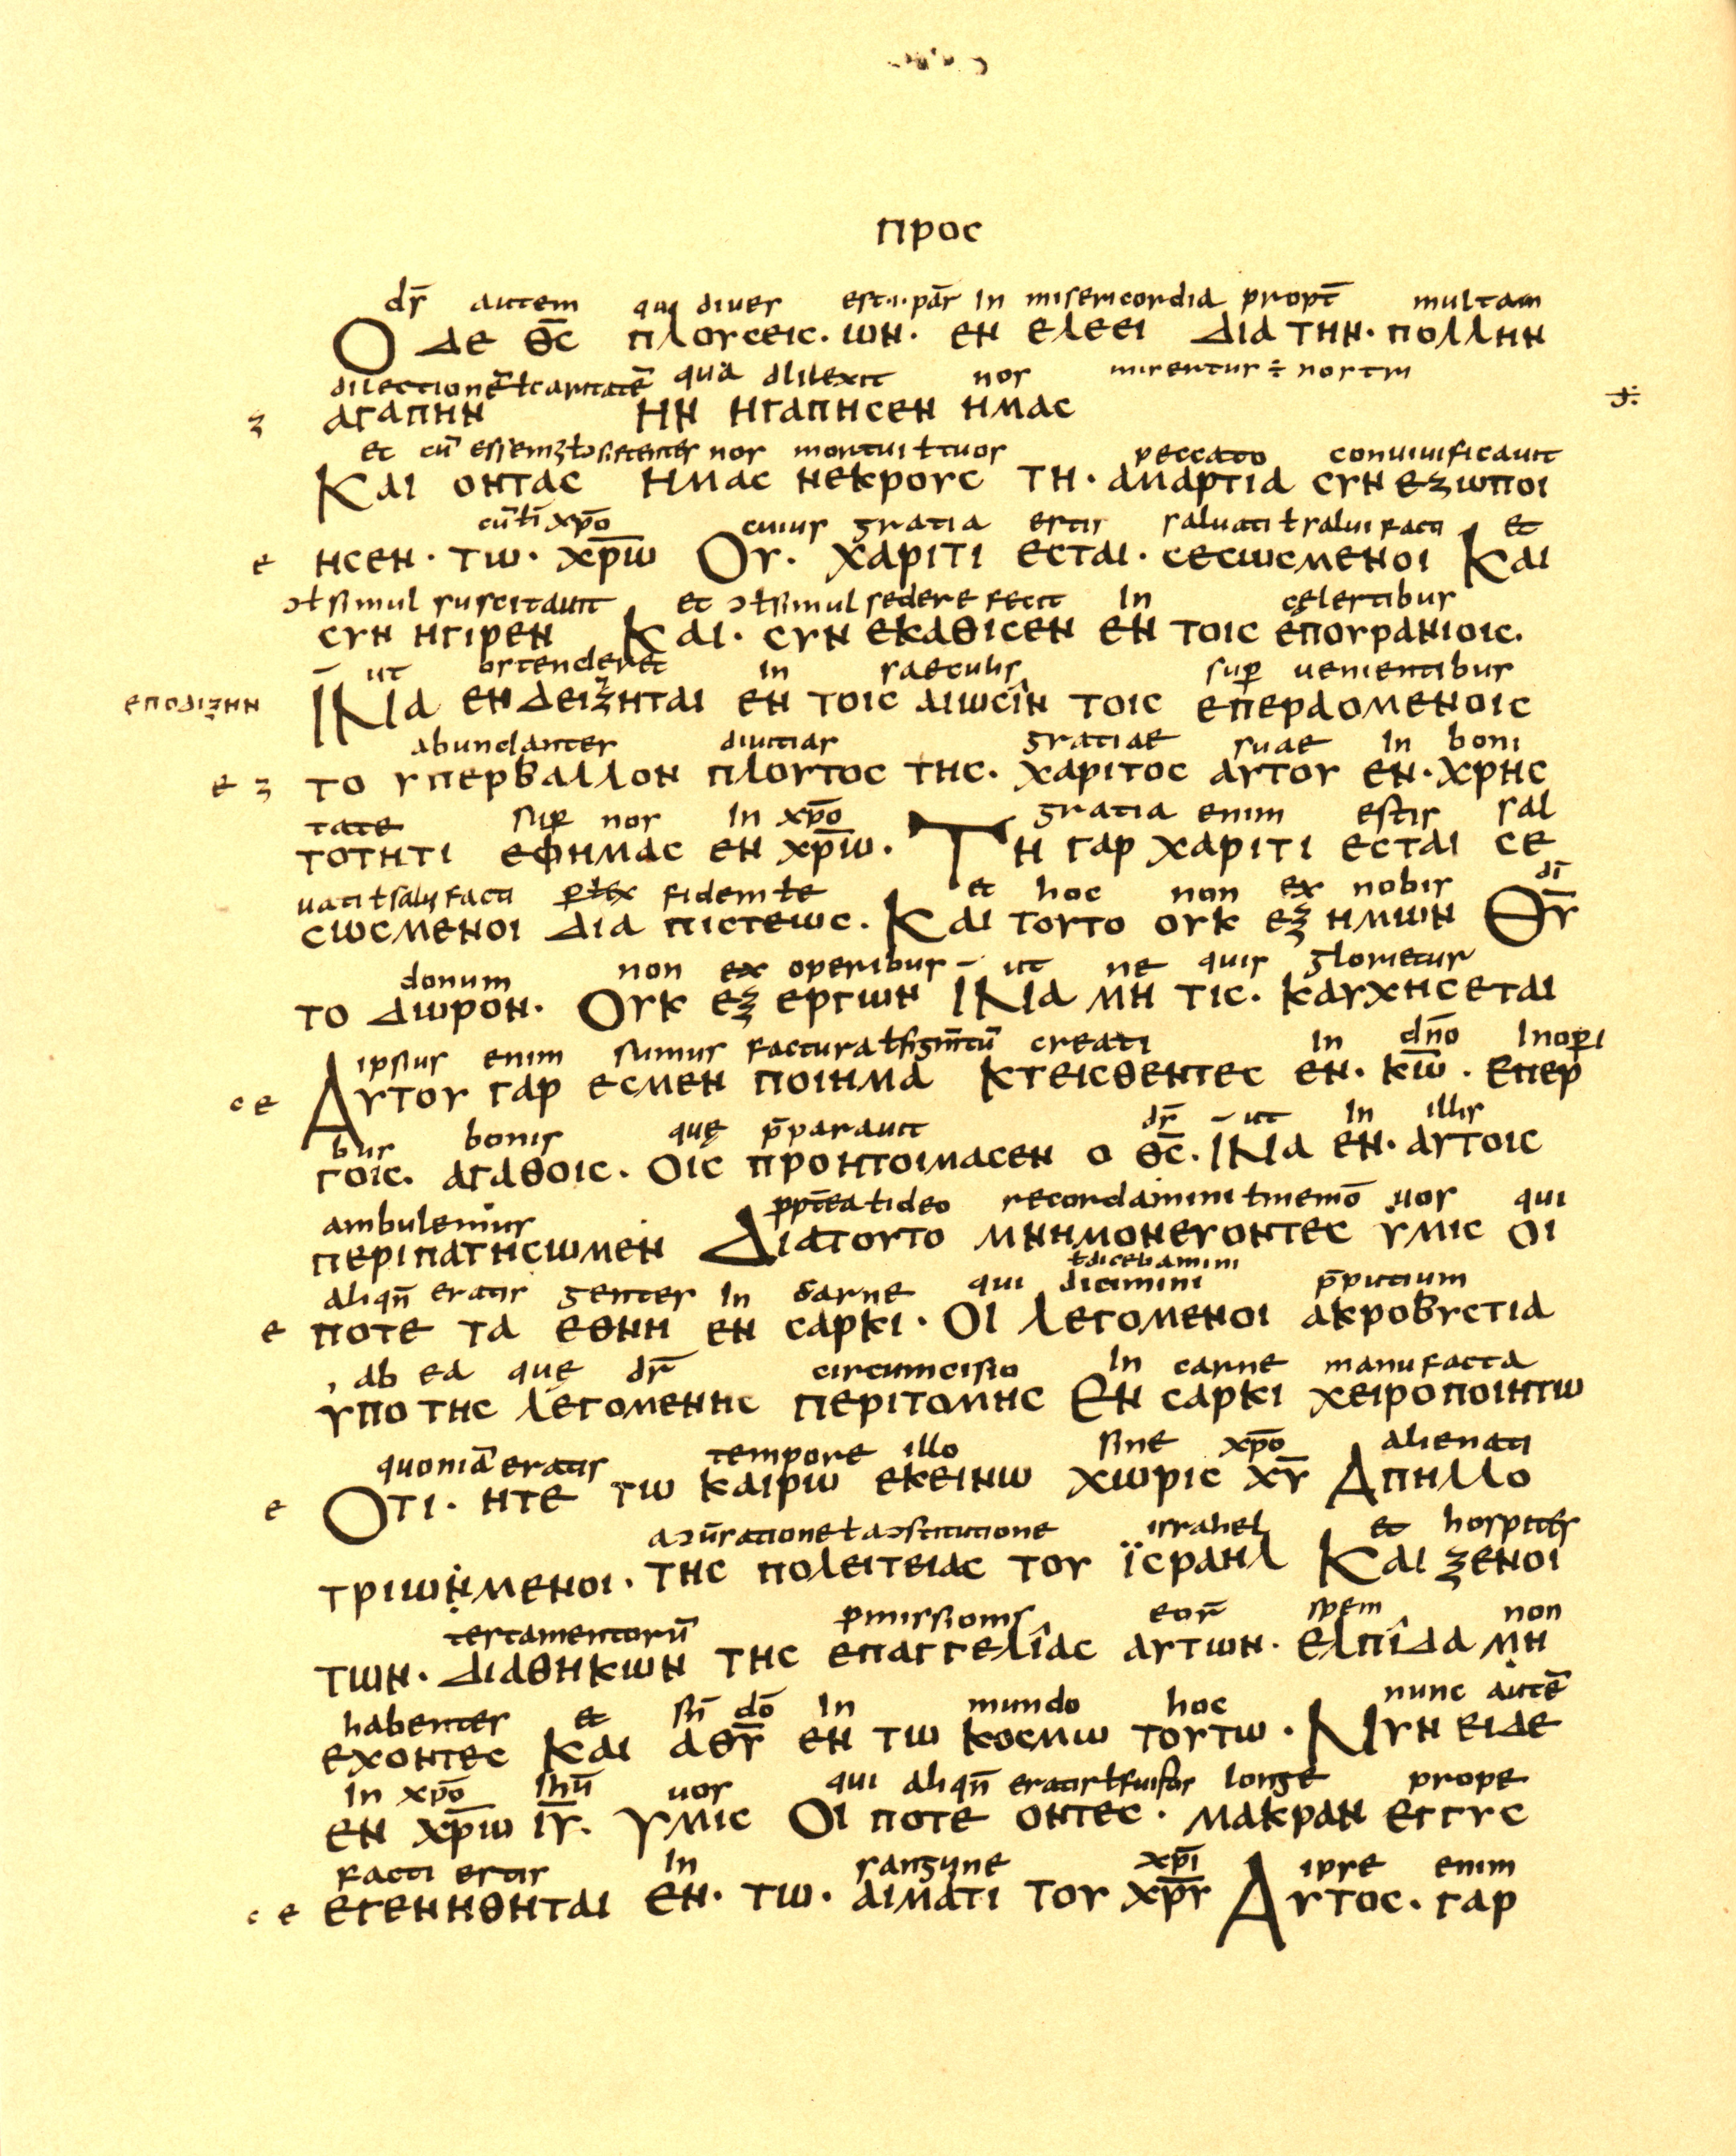 προς
dr̄ autem qui diues est .i. par̄ in misericordia propt̄ multam
Ο δε θ̅ς̅ πλουσεις· ων· εν ελεει δια την· πολλην
dilectionē ł caritatē qua dilexit nos
αγαπην ην ηγαπησεν ημας
et cū nos mortui peccato conuiuificauit
Και οντας ημας νεκρους τη· αμαρτια συν εζωποι
xp̄o cuius gratia estis saluati ł salui facti et
ησεν· τω· χ̅ρ̅ω̅ Ου· χαριτι εσται· σεσωσμενοι Και
ɔ ł simul suscitauit et ɔ ł simul sedere fecit in cęlestibus
συν ηγιρεν Και· συν εκαθισεν εν τοις επουρανιοις.
ut ostenderet in saeculis sup̄ uenientibus
εποδιξην ΙΝα ενδειξηται εν τοις αιωσιν τοις επερχομενοις
abundanter diuitias gratiae suae in boni
το υπερβαλλον πλουτος της· χαριτος αυτου εν· χρης
tate sup̄ nos in xp̄o gratia enim estis sal
τοτητι εφημας εν χ̅ρ̅ω̅. Τη γαρ χαριτι εσται σε
uati ł salui facti p ł ex fidem ł e et hoc non ex nobis dī
σωσμενοι δια πιστεως. Και τουτο ουκ εξ ημων Θ̅υ̅
donum non ex operibus ut ne quis glorietur
το δωρον· Ουκ εξ εργων ΙΝα μη τις· καυχησεται
ipsius enim sumus factura ł figmtū creati in dn̄o in opi
Αυτου γαρ εσμεν ποιημα κτεισθεντες εν· κ̅ω̅. επερ
bus bonis quę p̄parauit dr̄ ut in illis
γοις. αγαθοις. οις προητοιμασεν ο θ̅ς̅. ΙΝα εν· αυτοις
ambulemus ppt̄ea ł ideo recordamini ł memō uos qui
περιπατησωμεν Διατουτο μνημονευοντες υμις οι
ł dicebamini
aliqn̄ eratis gentes in carne qui dicimini p̄putium
ποτε τα εθνη εν σαρκι· Οι λεγομενοι ακροβυστια
ab ea quę dr̄ circumcisio in carne manufacta
υπο της λεγομενης περιτομης Εν σαρκι χειροποιητω
quoniā eratis tempore illo sine xp̄o alienati
Οτι· ητε τω καιρω εκεινω χωρις χ̅υ̅ Απηλλο
a ɔūratione ł a ɔstitutione israhel et hospites
τριωνμενοι· της πολειτειας του ϊσραηλ Και ξενοι
testamentorū pmissionis eor̄ spem non
των· διαθηκων της επαγγελιας αυτων· ελπιδα μη
habentes et sn̄ dō in mundo hoc nunc autē
εχοντες και αθ̅υ̅ εν τω κοσμω τουτω· Νυν ειδε
in xp̄o ihū uos qui aliqn̄ eratis ł fuistis longe prope
εν χ̅ρ̅ω̅ ι̅υ̅. υμις Οι ποτε οντες· μακραν εγγυς
facti estis in sanguine xp̄i ipse enim
εγενηθηται εν· τω· αιματι του χ̅ρ̅υ̅ Αυτος· γαρ